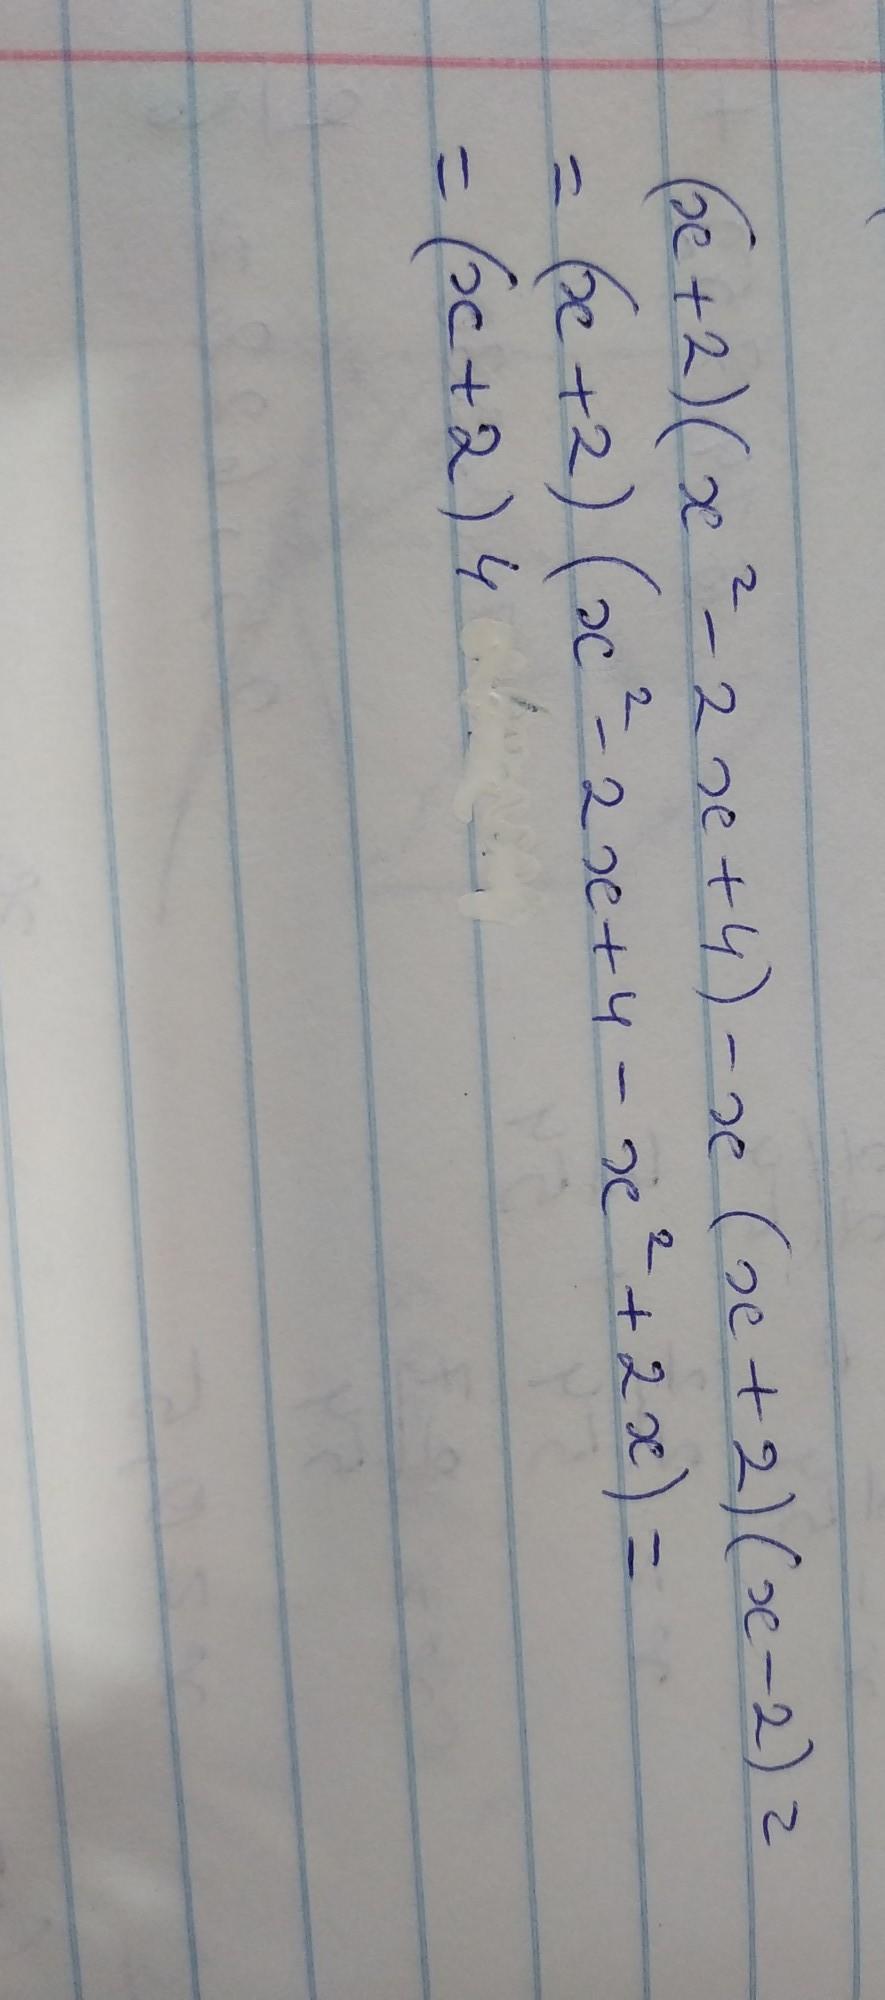 (x+2)(x²-2x+4)-x(x+2)(x-2)=
=(x+2)(x²-2x+4-x²+2x)=
=(x+2)4